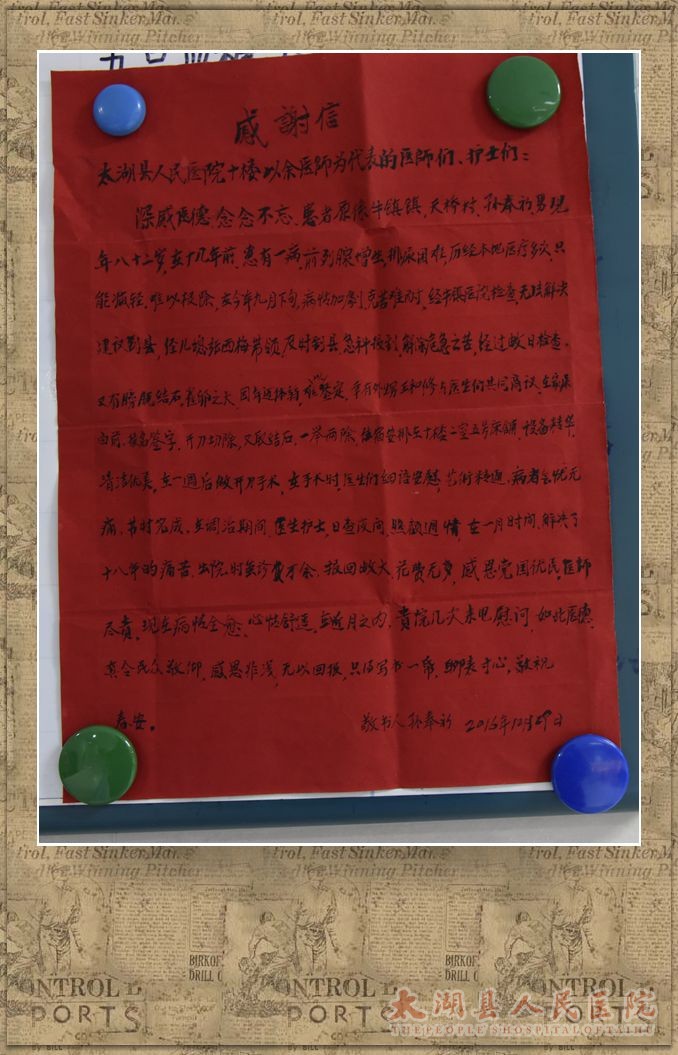 感謝信
太湖县人民医院十楼以余医师为代表的医师们、护士们：
深感医德,念念不忘,患者原系牛镇镇,天桥村,孙奉初男现
年八十二岁,在十几年前,患有一病前列腺增生,排尿困难,历经本地医疗多次,只
能减轻,难以根除,在今年九月下旬,病情加剧,克苦难耐,经牛镇医院检查,无法解决
建议到县,侄儿媳张西梅带领,及时到县急科接到,解除危急之苦,经过数日检查,
又有膀胱结石,鹅卵之大,因年迈体弱,难鉴定,幸有外甥王和修与医生们共同商议,在家属
面前,按名签字,开刀切除,又取结石,一举两除,住宿安排在十楼二室五号床铺,设备精华,
清洁优美,在一週后做开刀手术,在手术时,医生们细语安慰,艺术精通,病者无忧无
痛,节时完成,在调治期间,医生护士,日查夜问,照顾週情,在一月时间,解决了
十八年的痛苦,出院时医诊费万余,报回数大,花费无多,感恩党国优民,医师
尽责,现在病情全愈,心情舒适,在近月之内,貴院几次来电慰问,如此医德,
真令民众敬仰,感恩非浅,无以回报,只得写书一帋,聊表寸心,敬祝
春安。
敬书人孙奉初 2015年10月29日
CONTROL
PORTS
太湖县人民医院
THE PEOPLE'S HOSPITAL OF T.H.C